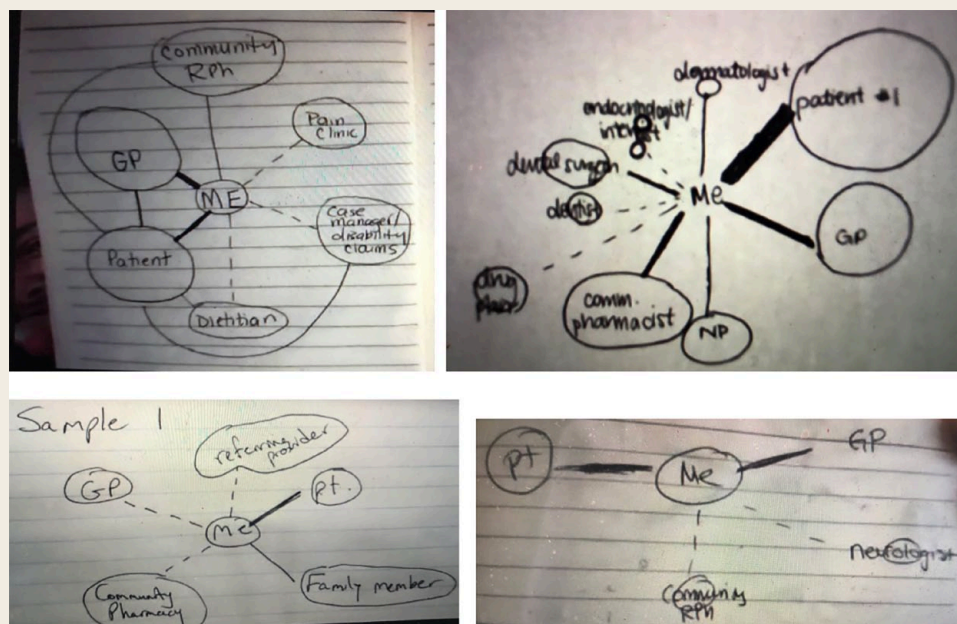 Community
RPh
Pain
Clinic
GP
ME
Case
manager/
disability
claims
Patient
Dietitian
dermatologist
patient #1
endocrinologist/
dental surgeon
Me
dentist
GP
drug
comm.
pharmacist
NP
Sample 1
referring
provider
GP
pt.
Me
Community
Pharmacy
Family member
pt
Me
GP
neurologist
Community
RPh